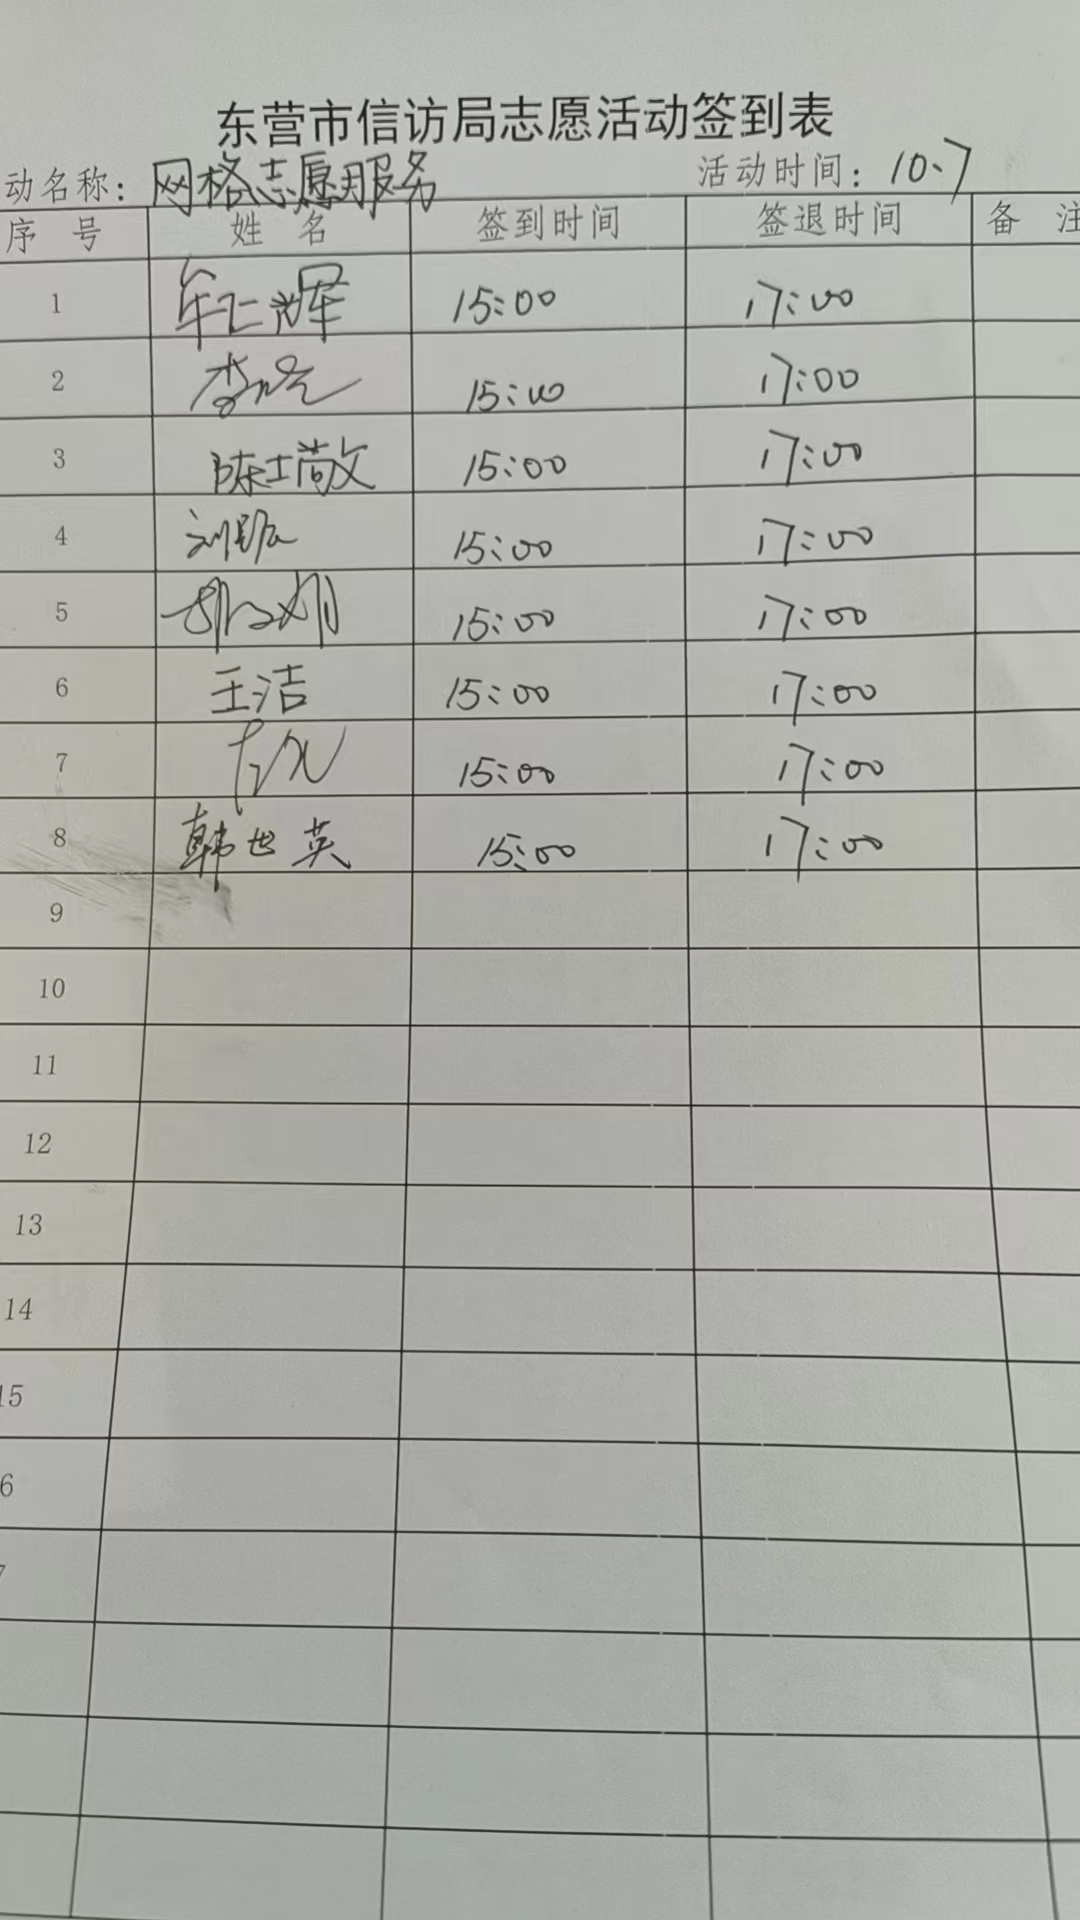 东营市信访局志愿活动签到表
动名称：网格志愿服务 活动时间：10.7
序 号 姓 名 签到时间 签退时间 备 注
1 牟仁辉 15:00 17:00
2 李 15:00 17:00
3 陈士敬 15:00 17:00
4 刘 15:00 17:00
5 胡 15:00 17:00
6 王洁 15:00 17:00
7 15:00 17:00
8 韩世英 15:00 17:00
9
10
11
12
13
14
15
6
7